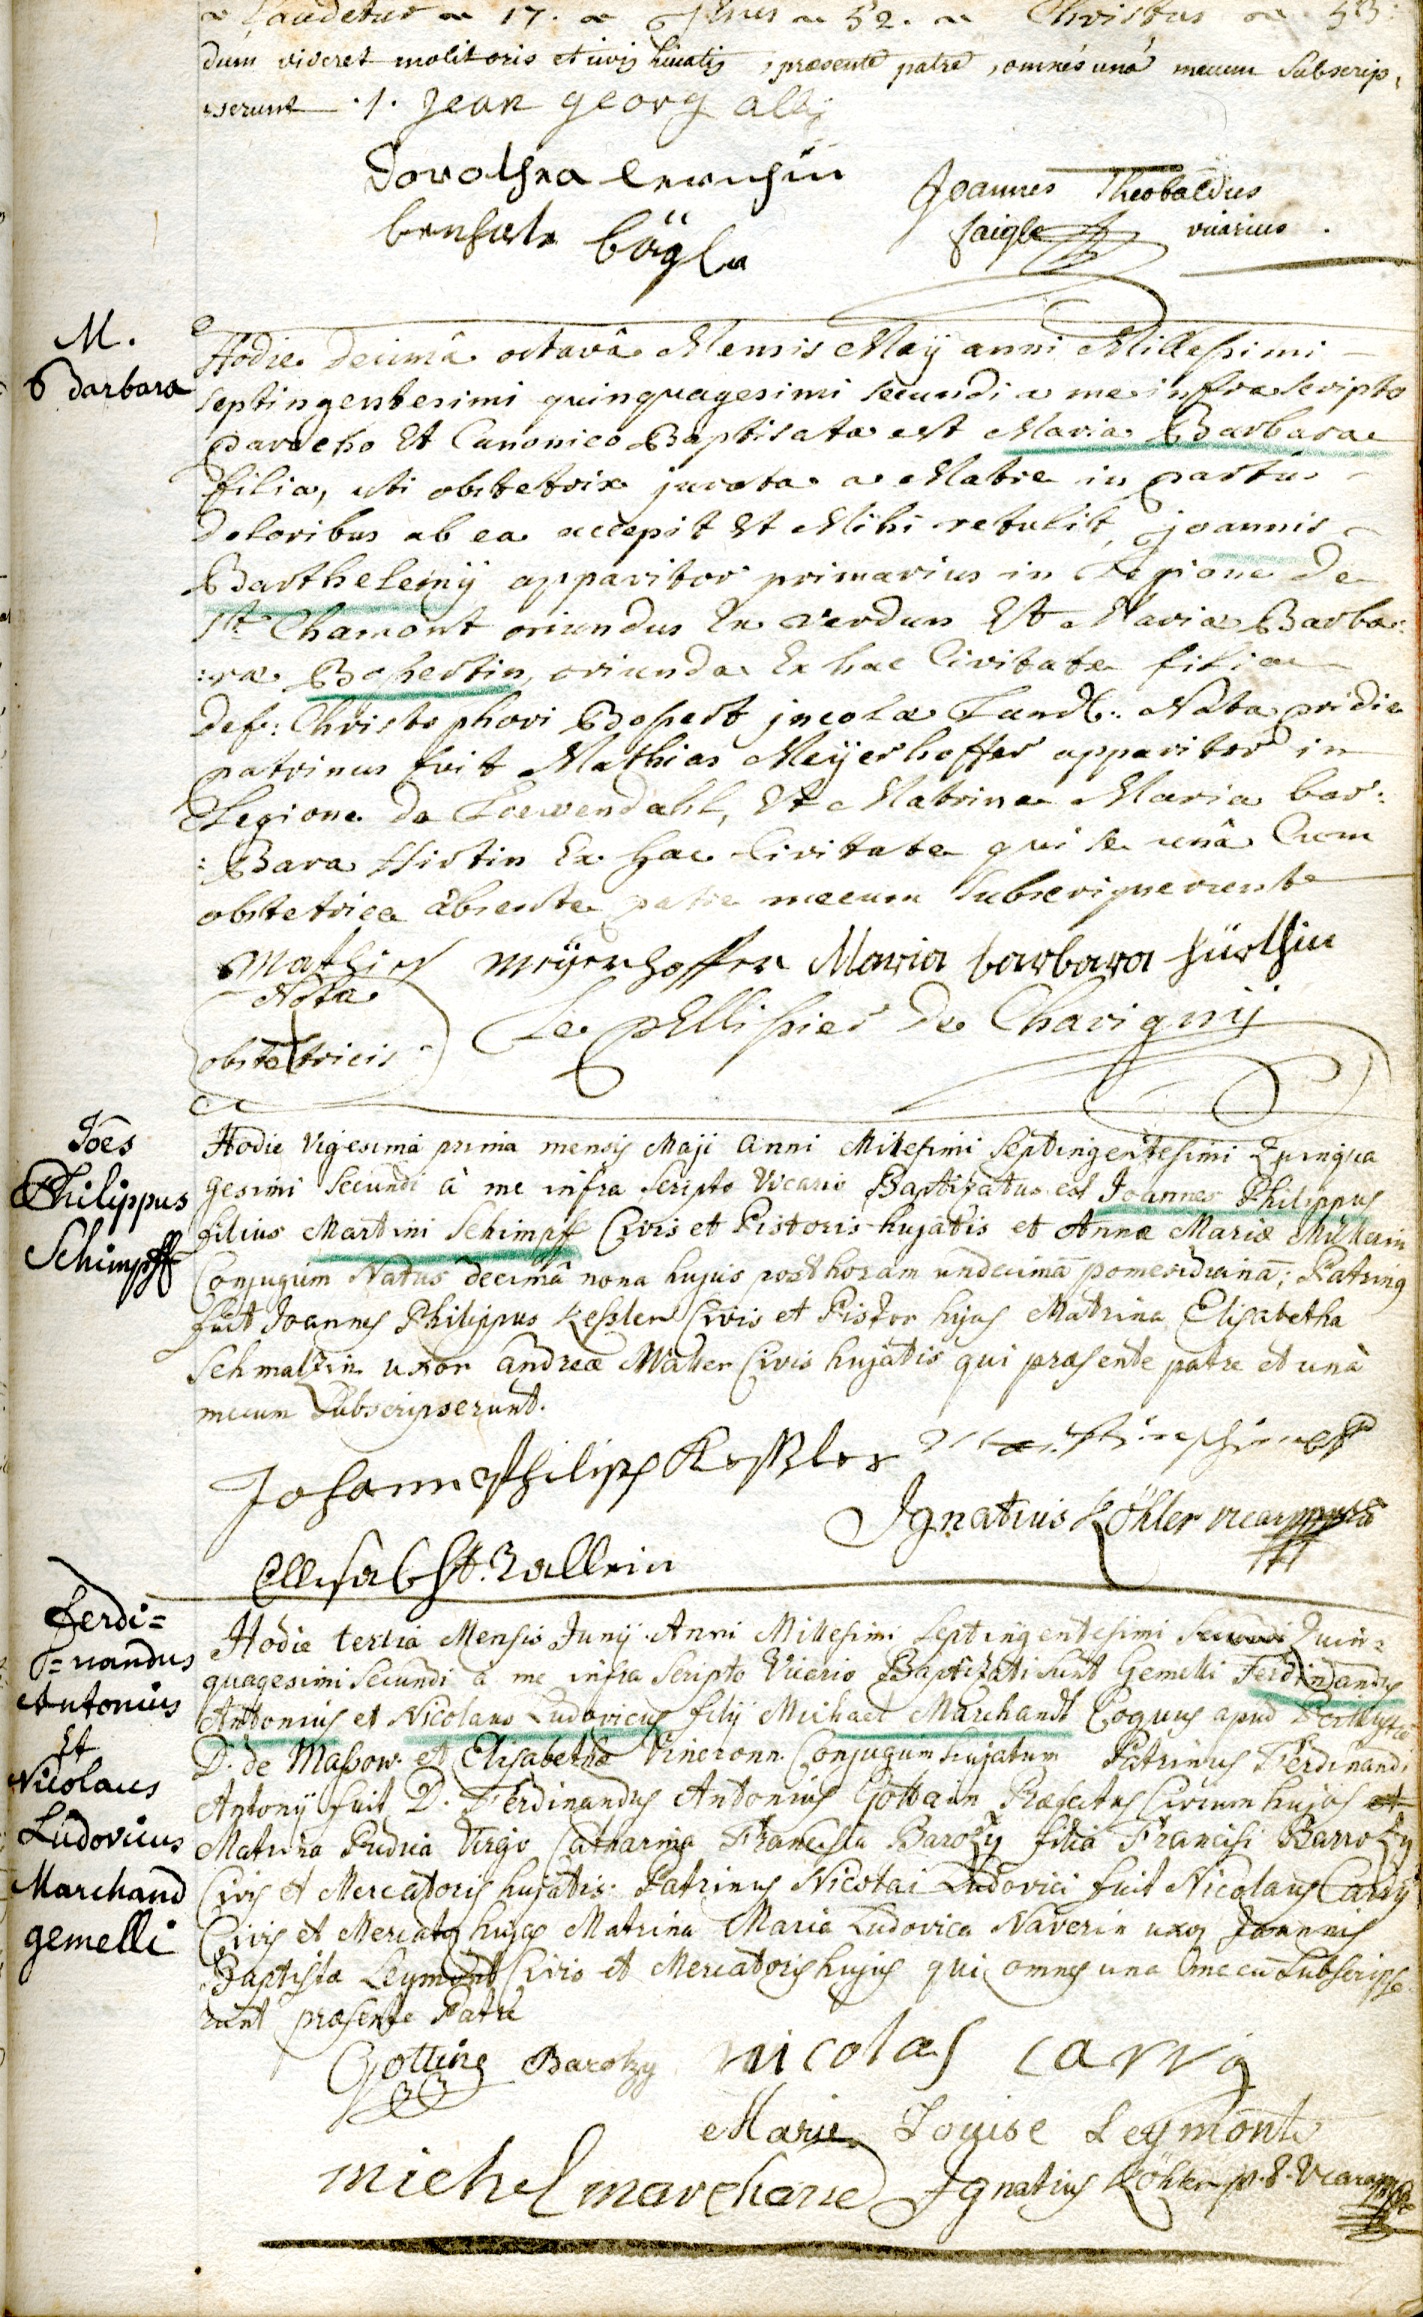 Laudetur 17. Jesus 52. Christus 53:
dum viveret molitoris et civis huiatis, praesente patre, omnes unà mecum subscrip,
serunt. /. Jean georg
Dorothea
Joannes Theobaldus
faigle vicarius.
M.
Barbara
Hodie decimâ octavâ Mensis Maÿ anni Millesimi
septingentesimi quinquagesimi secundi a me infra scripto
Parocho Et Canonico Baptisata est Maria Barbara
filia, uti obstetrix jurata a Matre in partûs
doloribus ab ea accepit Et Mihi retulit, joannis
Barthelemÿ apparitor primarius in Legione de
St Chamont oriundus Ex Verdun Et Maria Barba:
:ra Bohertin, oriunda Ex hac Civitate filia
def: Christophori Bopert jncolæ Land: Nata pridie
patrinus fuit Mathias Meÿerhoffer apparitor in
Legione de Loewendahl, Et Matrina Maria bar:
:Bara Hirtin Ex hac Civitate qui se unâ Cum
obstetrice absente patre mecum subscripserunt
Mathies meÿerhoffer Maria barbara hürthin
Nota
obstetricis
Le pEllissier De Chavignÿ
Joēs
Philippus
Schimpff
Hodie vigesima prima mensis Maji anni Millesimi Septingentesimi Quinqua
gesimi secundi à me infra scripto Vicario Baptizatus est Joannes Philippus
filius Martini Schimpff Civis et Pistoris hujatis et Annæ Mariæ Müllerin
Conjugum Natus decimâ nona hujus post horam undecimā pomeridianā; Patrinus
fuit Joannes Philippus Kessler Civis et Pistor hujas Matrina Elisabetha
Schmaltzin uxor Andreæ Waller Civis hujatis qui præsente patre et unà
mecum subscripserunt.
Johann Philipp Kessler
Ignatius Köhler vicarius
Ellisabeht. Wallerin
Ferdi=
=nandus
Antonius
Et
Nicolaus
Ludovicus
Marchand
gemelli
Hodie tertia Mensis Junÿ Anni Millesimi Septingentesimi Secundi Quin=
quagesimi secundi a me infra scripto Vicario Baptizati sunt Gemelli Ferdinandus
Antonius et Nicolaus Ludovicus filÿ Michael Marchandt Coquus apud
D. de Massow et Elisabethæ Vineronn Conjugum hujatum Patrinus Ferdinandi
Antonÿ fuit D. Ferdinandus Antonius Gottain Præfectus Civium hujas et
Matrina Pudica Virgo Catharina Francisca Barozy filia Francisi Barrozy
Civis et Mercatoris hujatis. Patrinus Nicolai Ludovici fuit Nicolaus Carrÿ
Civis et Mercator hujas Matrina Maria Ludovica Naverin uxor Joannis
Baptista Leymont Civis et Mercatoris hujus qui omnes una mecū subscripse
runt præsente Patre
Gottine Barotzy nicolas carrÿ
Marie Louise Leymont
michel marchand Ignatius Köhler p. t. Vicarius